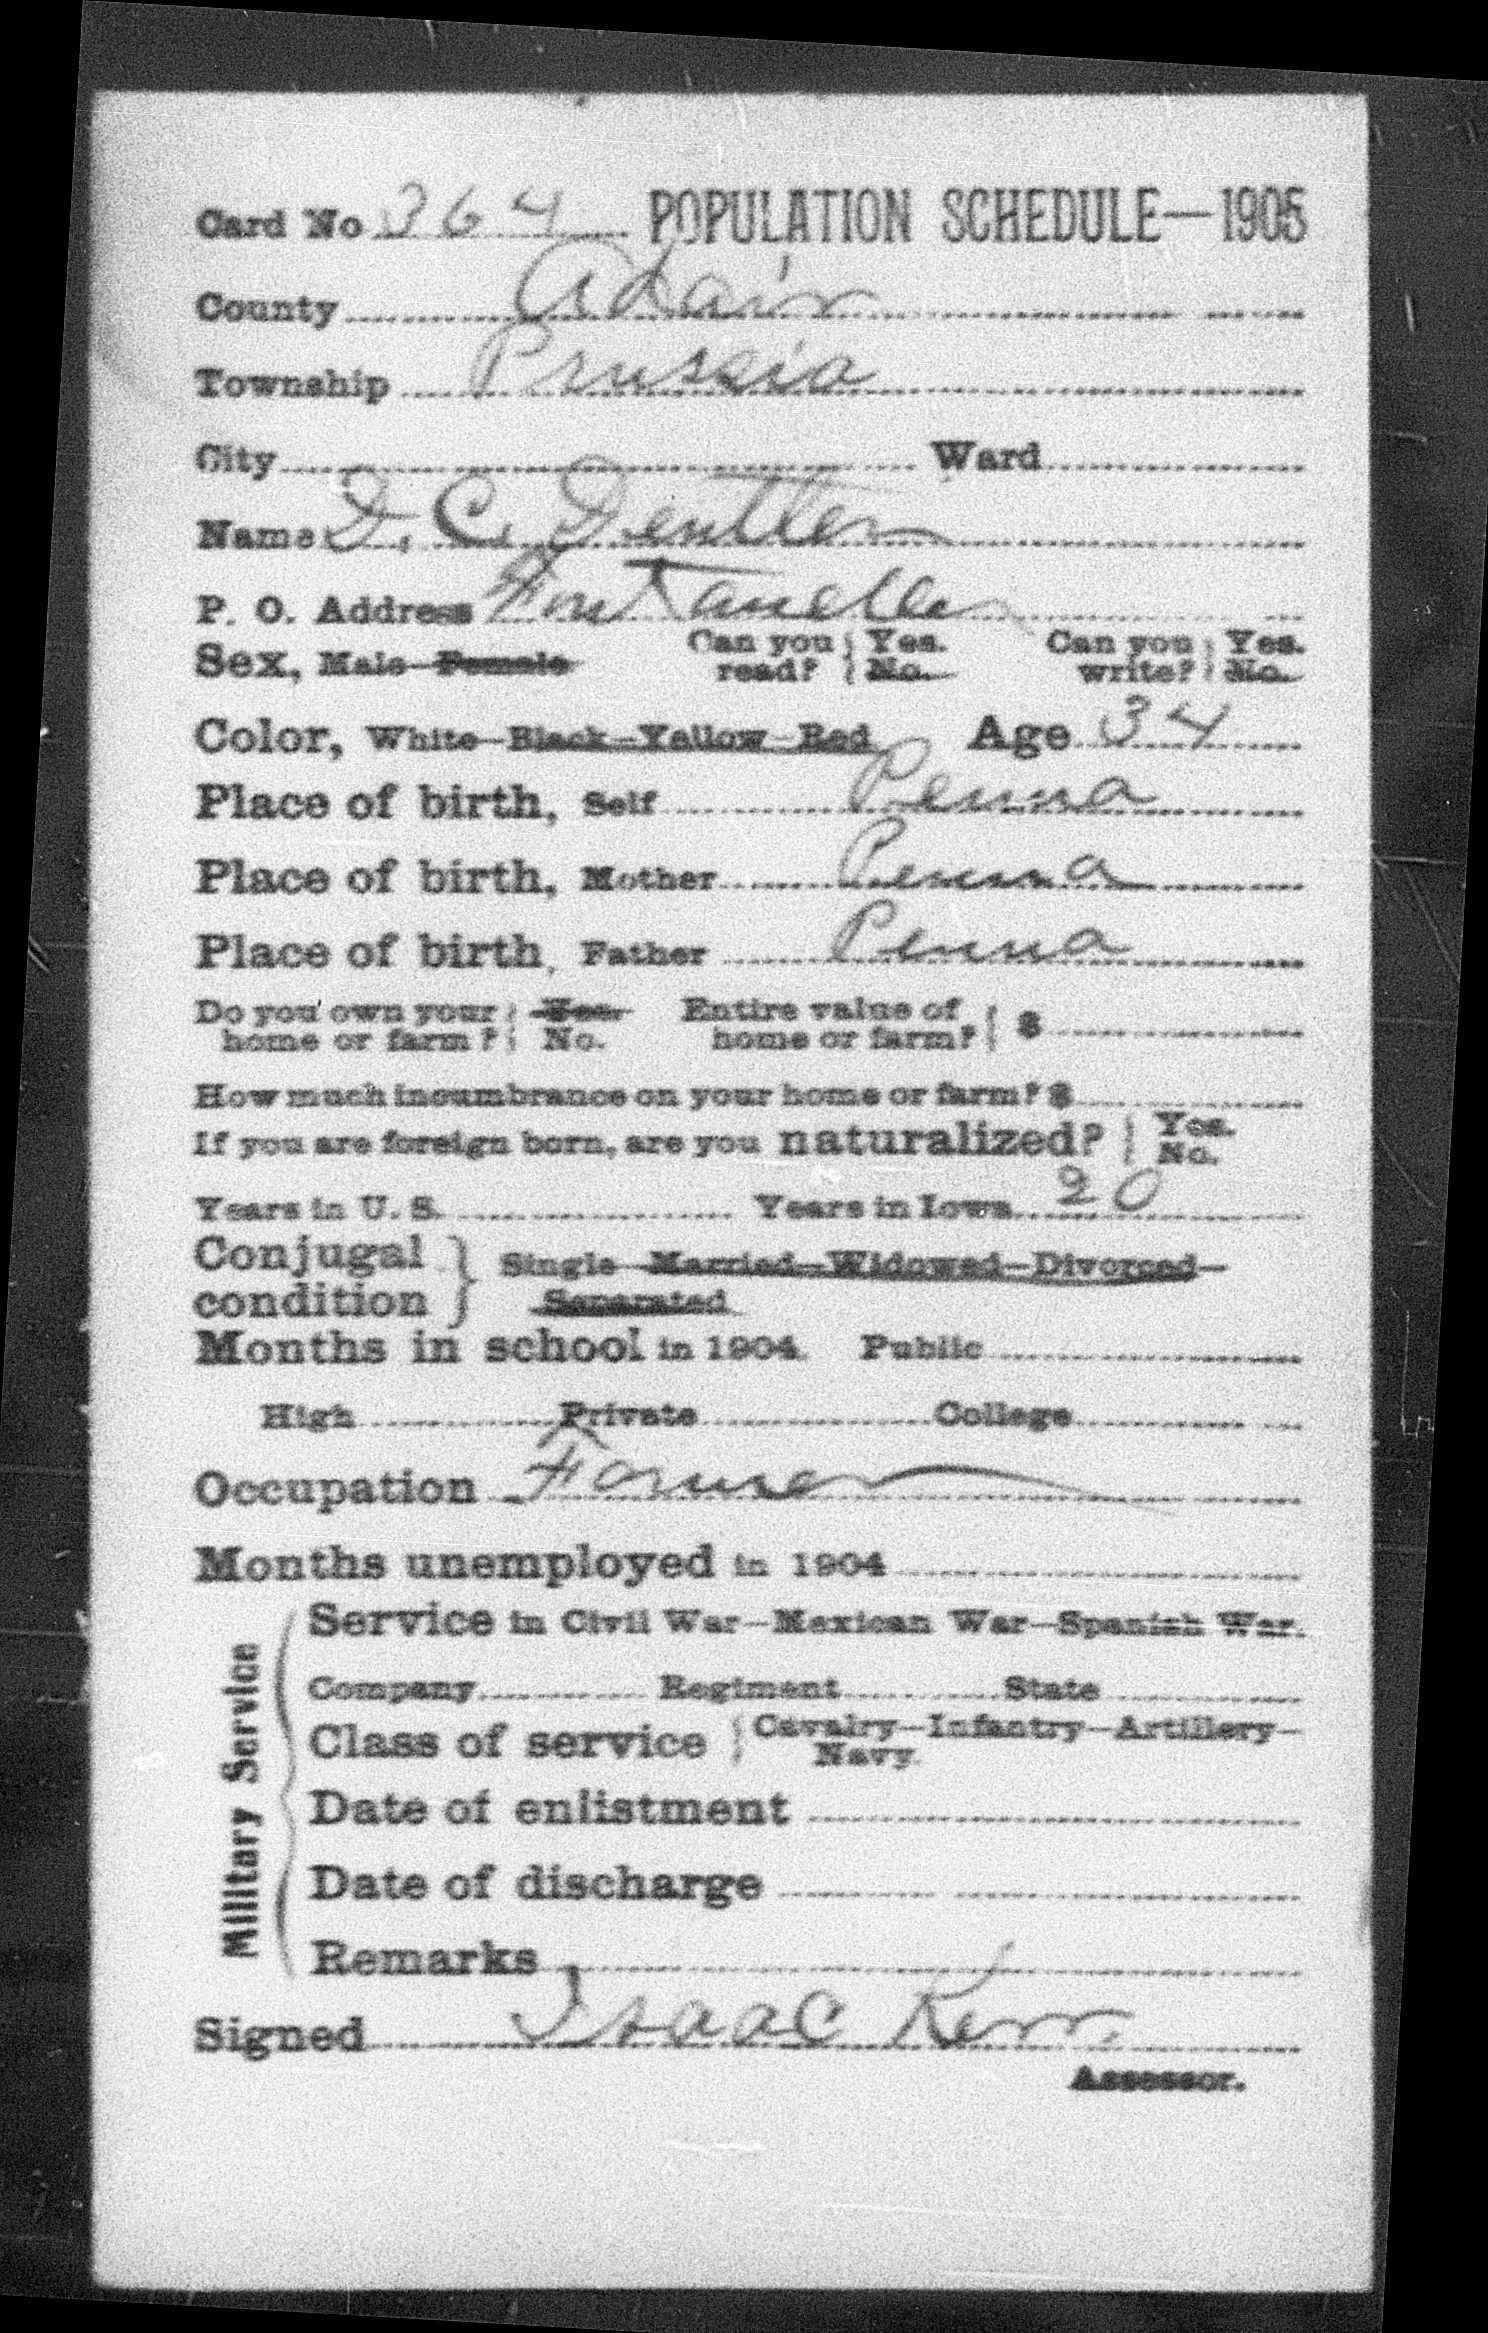 Card No 364 POPULATION SCHEDULE—1905
County Adair
Township Prussia
City Ward
Name D. C. Dentler
P. O. Address Fontanelle
Sex, Male—Female Can you read? Yes. No. Can you write? Yes. No.
Color, White—Black—Yellow—Red Age 34
Place of birth, Self Penna
Place of birth, Mother Penna
Place of birth, Father Penna
Do you own your home or farm? Yes No. Entire value of home or farm? $
How much incumbrance on your home or farm? $
If you are foreign born, are you naturalized? Yes. No.
Years in U. S. Years in Iowa 20
Conjugal condition Single—Married—Widowed—Divorced—
Separated
Months in school in 1904. Public
High Private College
Occupation Farmer
Months unemployed in 1904
Military Service
Service in Civil War—Mexican War—Spanish War.
Company Regiment State
Class of service Cavalry—Infantry—Artillery—
Navy.
Date of enlistment
Date of discharge
Remarks
Signed Isaac Kerr.
Assessor.